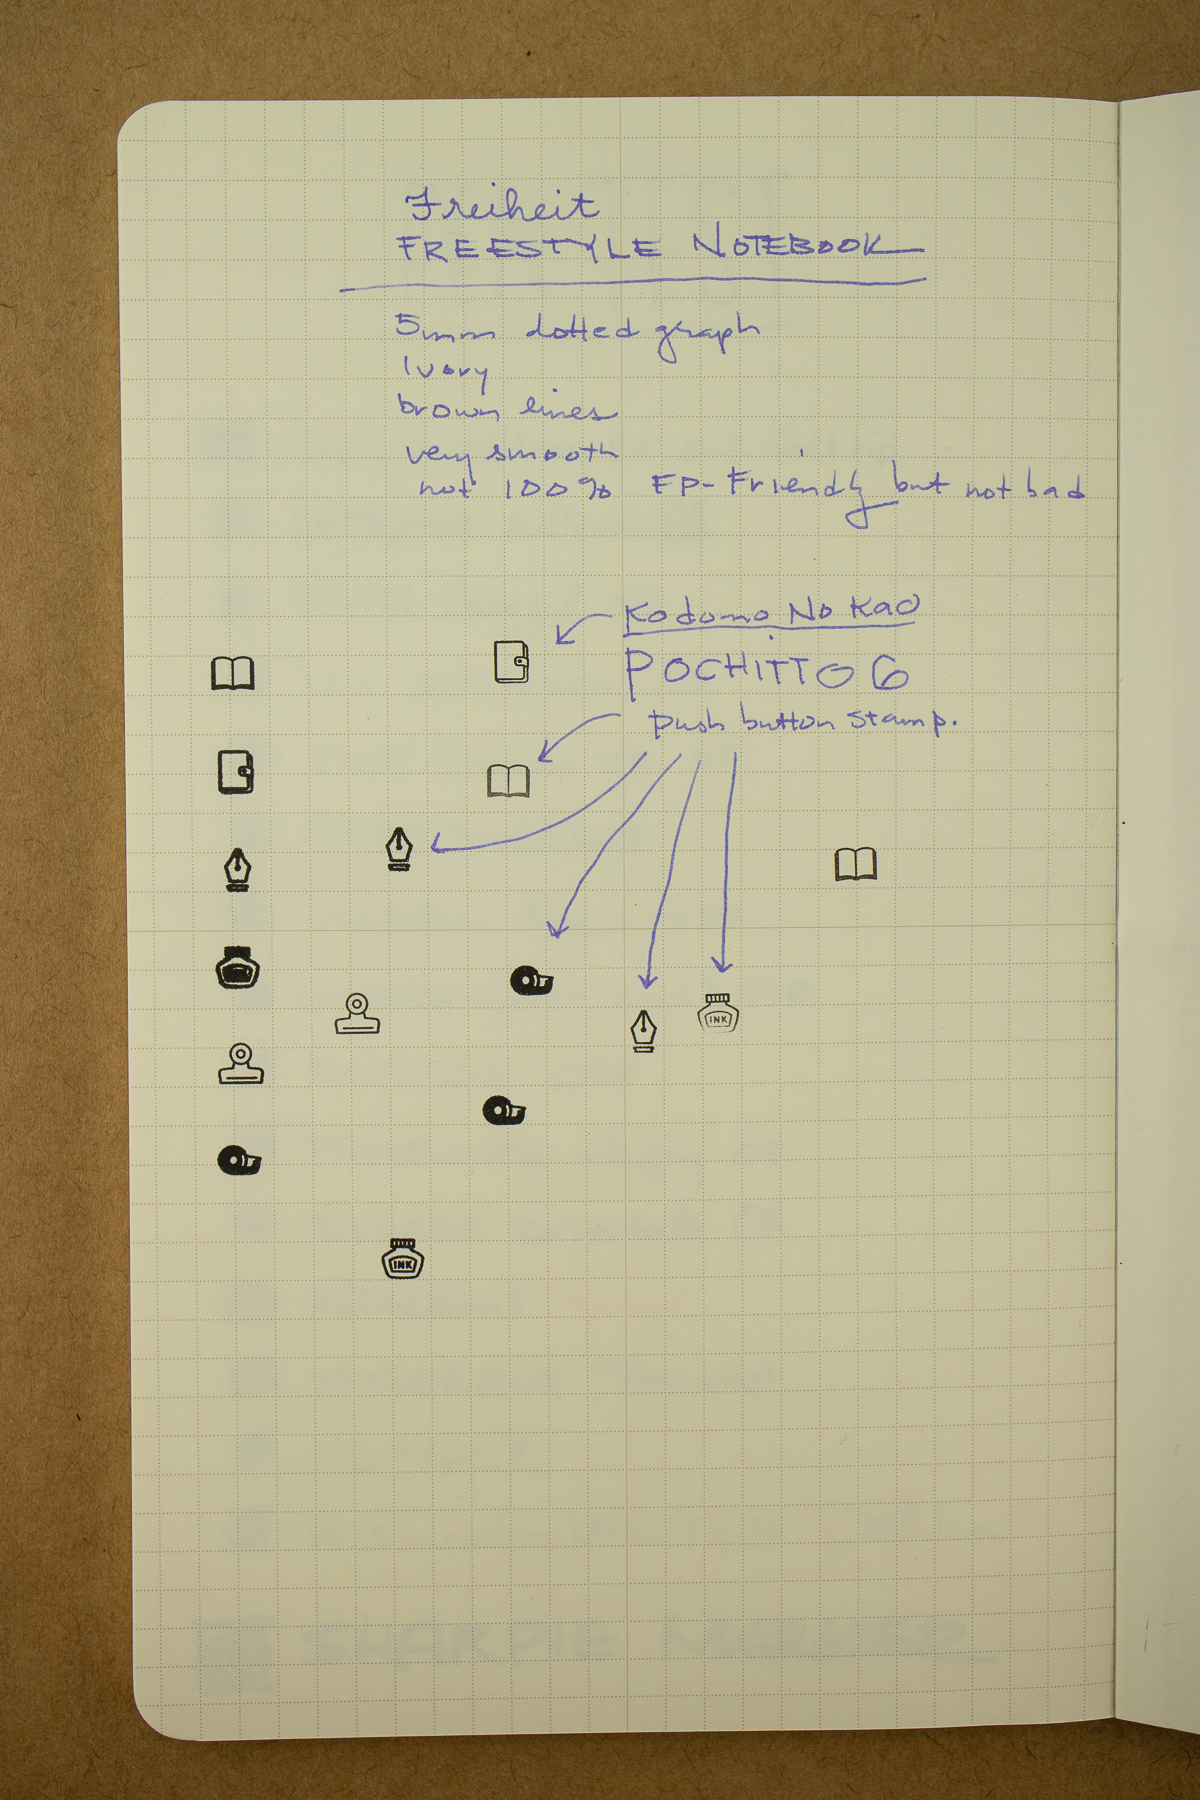 Freiheit
FREESTYLE NOTEBOOK
5mm dotted graph
Ivory
brown lines
very smooth
not 100% FP-Friendly but not bad
Kodomo No Kao
POCHITTO 6
push button stamp.
INK
INK
SHARPIE